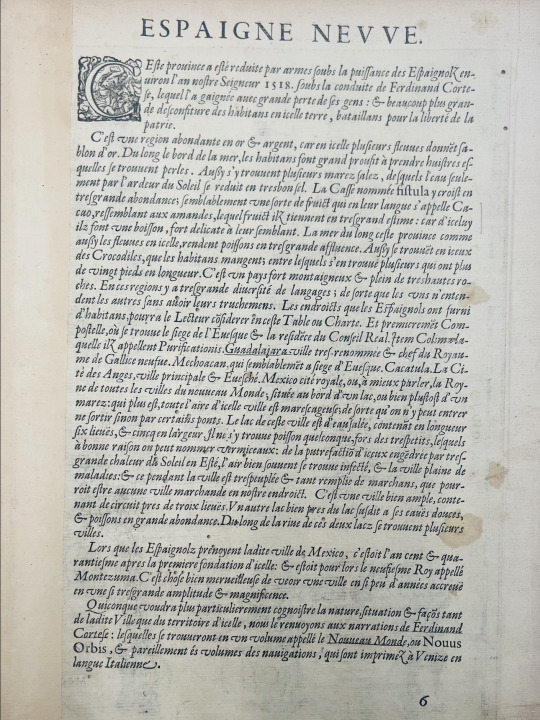 ESPAIGNE NEVVE.
CEste prouince a esté reduite par armes soubs la puissance des Espaignolz en-
uiron l'an nostre Seigneur 1518. soubs la conduite de Ferdinand Corte-
se, lequel l'a gaignée auec grande perte de ses gens : & beaucoup plus gran-
de desconfiture des habitans en icelle terre, bataillans pour la liberté de la
patrie.
C'est vne region abondante en or & argent, car en icelle plusieurs fleuues donnēt sa-
blon d'or. Du long le bord de la mer, les habitans font grand proufit à prendre huistres es-
quelles se trouuent perles. Aussy s'y trouuent plusieurs marez salez, desquels l'eau seule-
ment par l'ardeur du Soleil se reduit en tresbon sel. La Casse nommée fistula y croist en
tresgrande abondance; semblablement vne sorte de fruict qui en leur langue s'appelle Ca-
cao, ressemblant aux amandes, lequel fruict ilz tiennent en tresgrand estime: car d'iceluy
ilz font vne boisson, fort delicate à leur semblant. La mer du long ceste prouince comme
aussy les fleuues en icelle, rendent poissons en tresgrande affluence. Aussy se trouuēt en iceux
des Crocodiles, que les habitans mangent; entre lesquels s'en trouuē plusieurs qui ont plus
de vingt pieds en longueur. C'est vn pays fort montaigneux & plein de treshautes ro-
ches. En ces regions y a tresgrande diuersité de langages; de sorte que les vns n'enten-
dent les autres sans auoir leurs truchemens. Les endroicts que les Espaignols ont furni
d'habitans, pourra le Lecteur cōsiderer en ceste Table ou Charte. Et premieremēt Com-
postelle, où se trouue le siege de l'Euesque & la residēce du Conseil Real. Item Colimarla-
quelle ilz appellent Purificationis. Guadalajara ville tres-renommée & chef du Royau-
me de Gallice neufue. Mechoacan, qui semblablemēt a siege d'Euesque. Cacatula. La Ci-
té des Anges, ville principale & Euesché. Mexico cité royale, ou, à mieux parler, la Roy-
ne de toutes les villes du nouueau Monde, située au bord d'vn lac, ou bien plustost d'vn
marez: qui plus est, toute l'aire d'icelle ville est marescageuse; de sorte qu'on n'y peut entrer
ne sortir sinon par certains ponts. Le lac de ceste ville est d'eau salée, contenāt en longueur
six lieuës, & cincq en largeur. Il ne s'y trouue poisson quelconque, fors des trespetits, lesquels
à bonne raison on peut nommer vermiceaux: de la putrefactiō d'iceux engēdrée par tres-
grande chaleur du Soleil en Esté, l'air bien souuent se trouue infecté, & la ville plaine de
maladies: & ce pendant la ville est trespeuplée & tant remplie de marchans, que pour-
roit estre aucune ville marchande en nostre endroict. C'est vne ville bien ample, conte-
nant de circuit pres de trois lieuës. Vn autre lac bien pres du lac susdit a ses eauës douces,
& poissons en grande abondance. Du long de la riue de cēs deux lacz se trouuent plusieurs
villes.
Lors que les Espaignolz prēnoyent ladite ville de Mexico, c'estoit l'an cent & qua-
rantiesme apres la premiere fondation d'icelle: & estoit pour lors le neufiesme Roy appellé
Montezuma. C'est chose bien merueilleuse de veoir vne ville en si peu d'années accreuē
en vne si tresgrande amplitude & magnificence.
Quiconque voudra plus particulierement cognoistre la nature, situation & façōs tant
de ladite Ville que du territoire d'icelle, nous le renuoyons aux narrations de Ferdinand
Cortese: lesquelles se trouueront en vn volume appellé le Nouueau Monde, ou Nouus
Orbis, & pareillement és volumes des nauigations, qui sont imprimez à Venize en
langue Italienne.
6